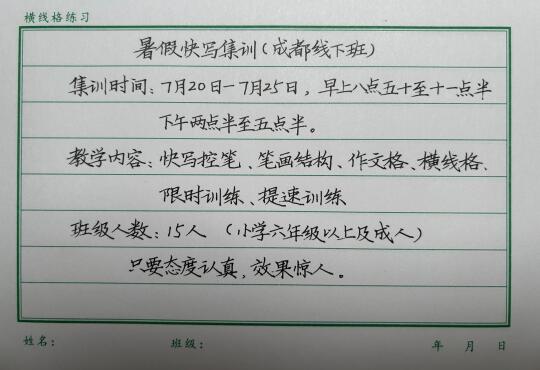 横线格练习
暑假快写集训(成都线下班)
集训时间:7月20日—7月25日,早上八点五十至十一点半
下午两点半至五点半。
教学内容:快写控笔、笔画结构、作文格、横线格、
限时训练、提速训练
班级人数:15人 (小学六年级以上及成人)
只要态度认真,效果惊人。
姓名: 班级: 年 月 日